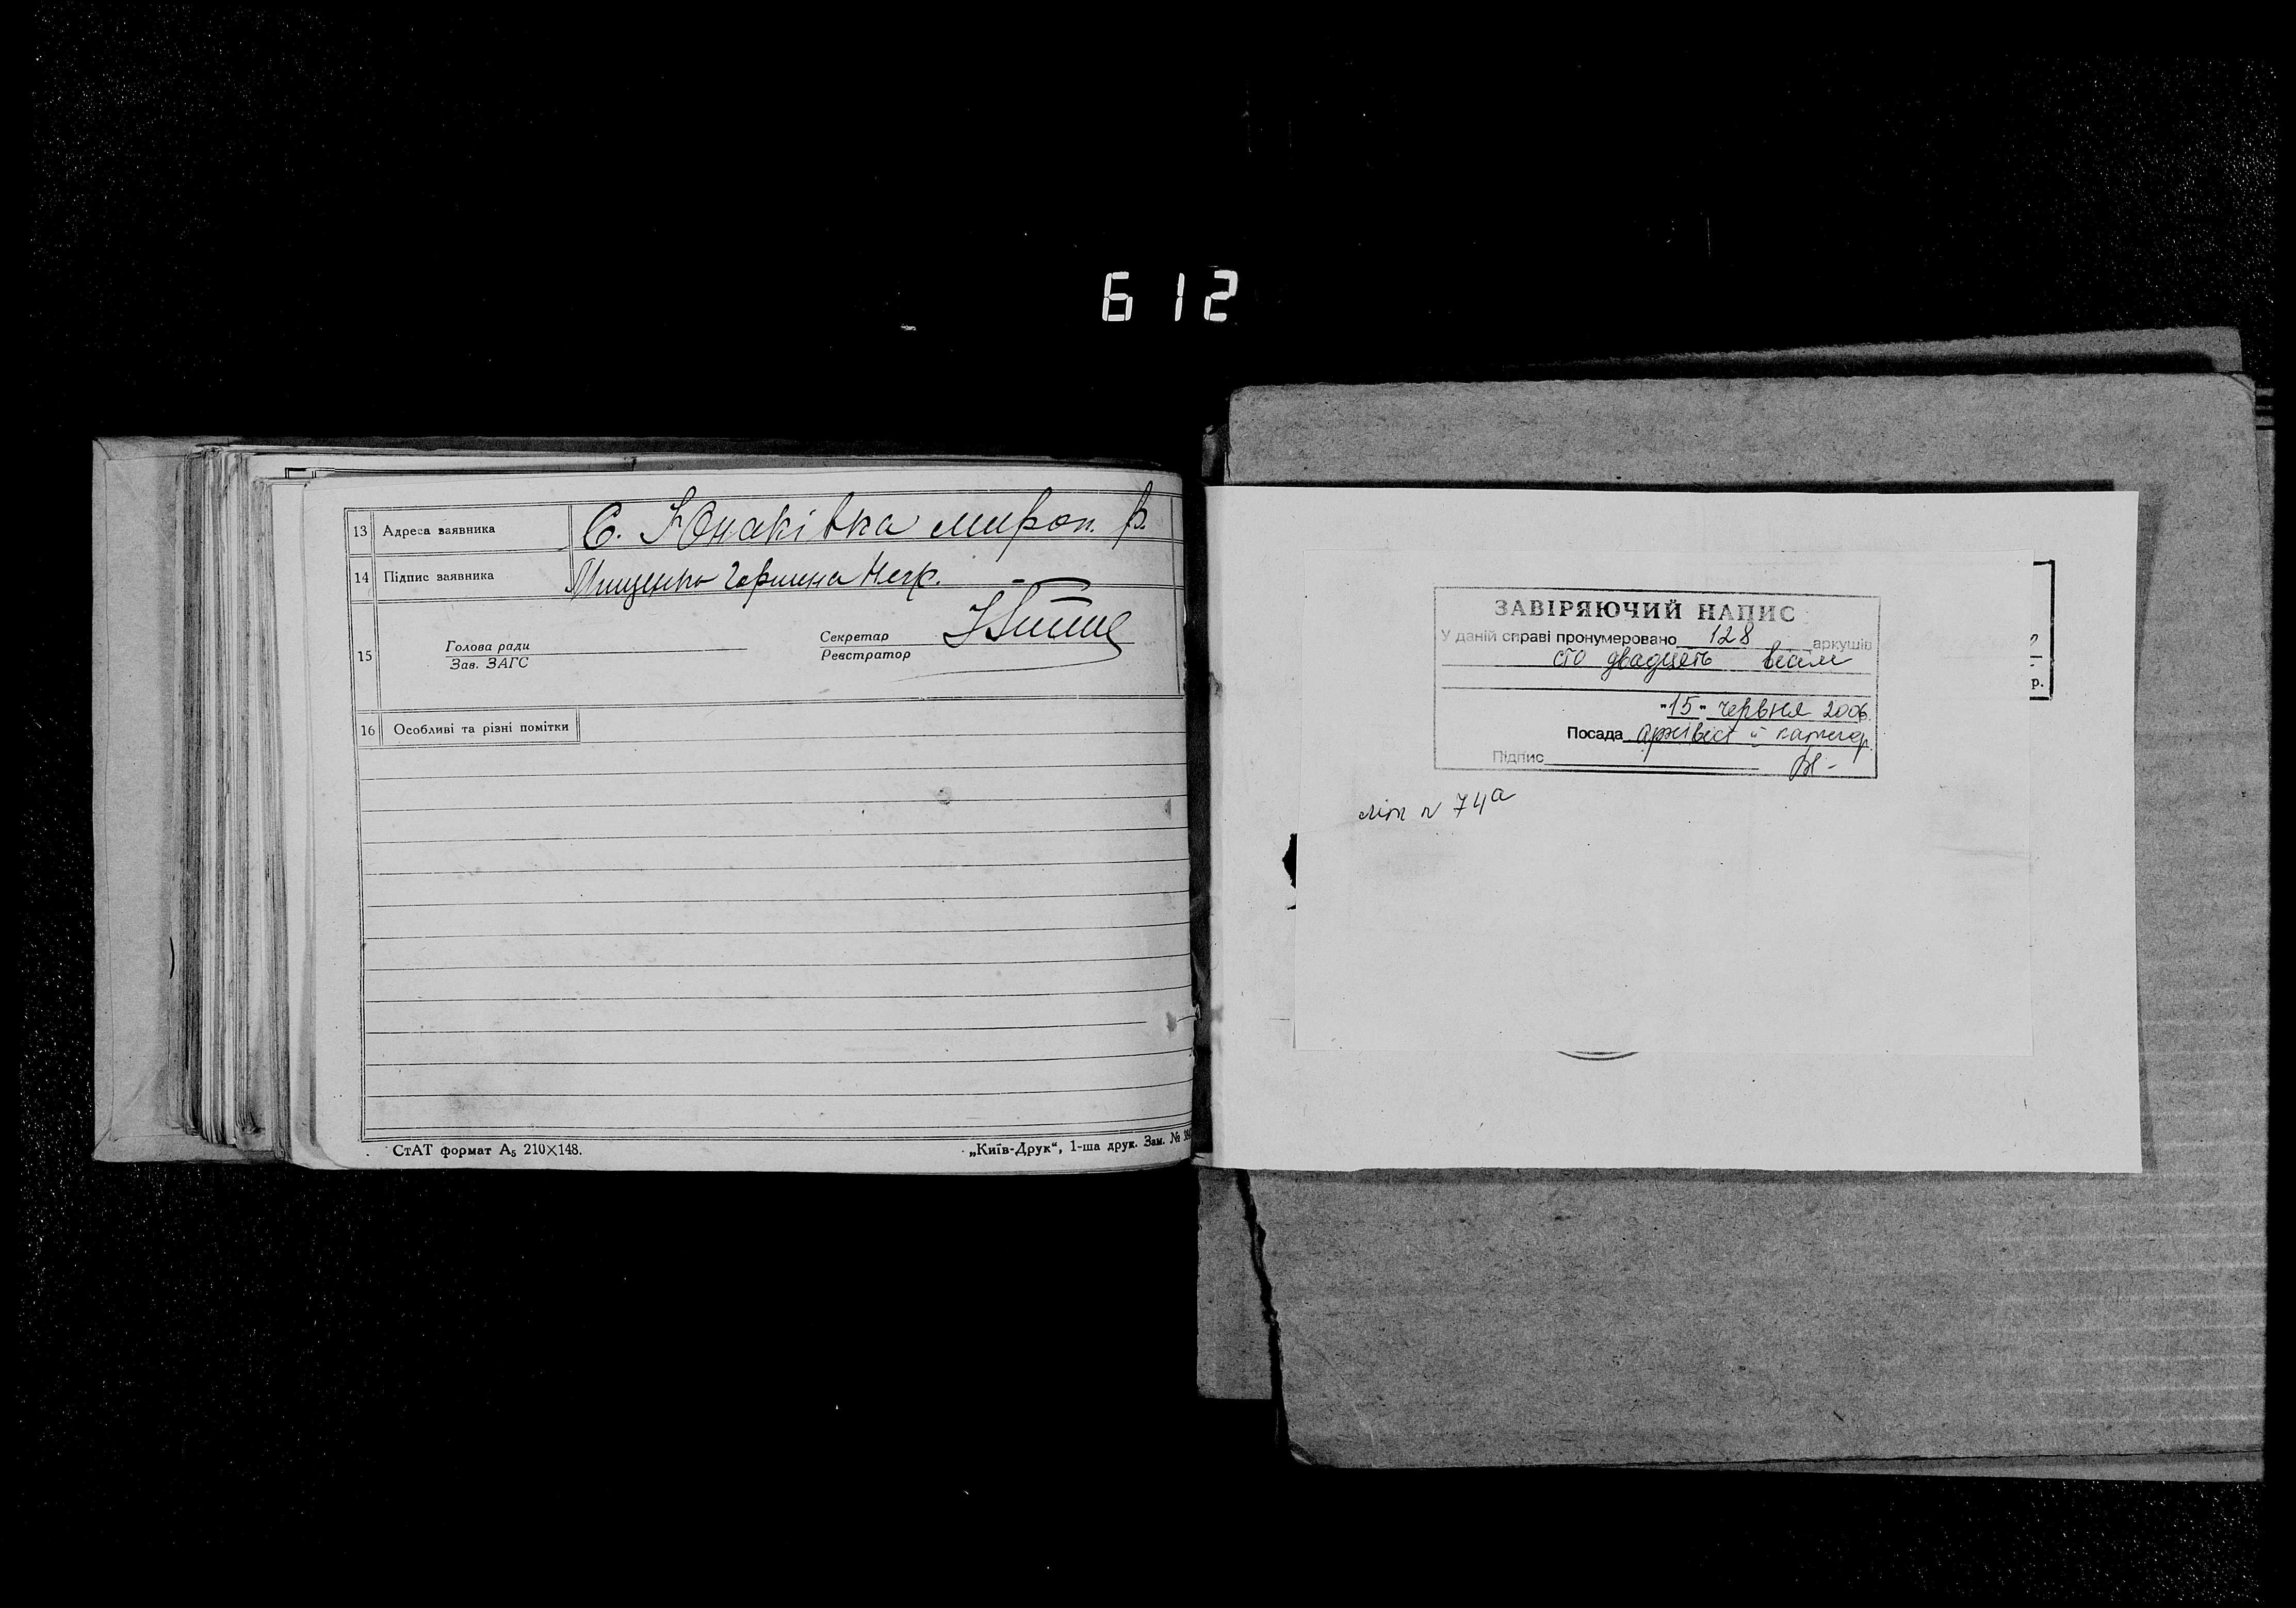 612
13 Адреса заявника С. Юнаківка мироп. р.
14 Підпис заявника Мищенко
15
Голова ради
Зав. ЗАГС
Секретар
Реєстратор
16 Особливі та різні помітки
СтАТ формат А5 210×148.
„Київ-Друк“, 1-ша друк. Зам. №
ЗАВІРЯЮЧИЙ НАПИС
У даній справі пронумеровано 128 аркушів
сто двадцять вісім
"15" червня 2006
Посада архівіст II категор.
Підпис
літ N 74а
р.